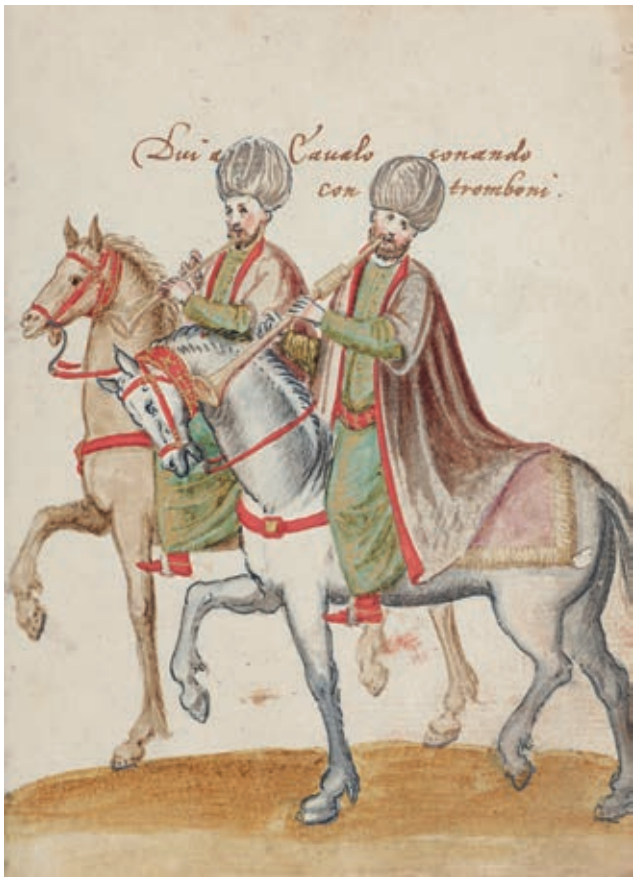 Dui a Caualo sonando
con tromboni.